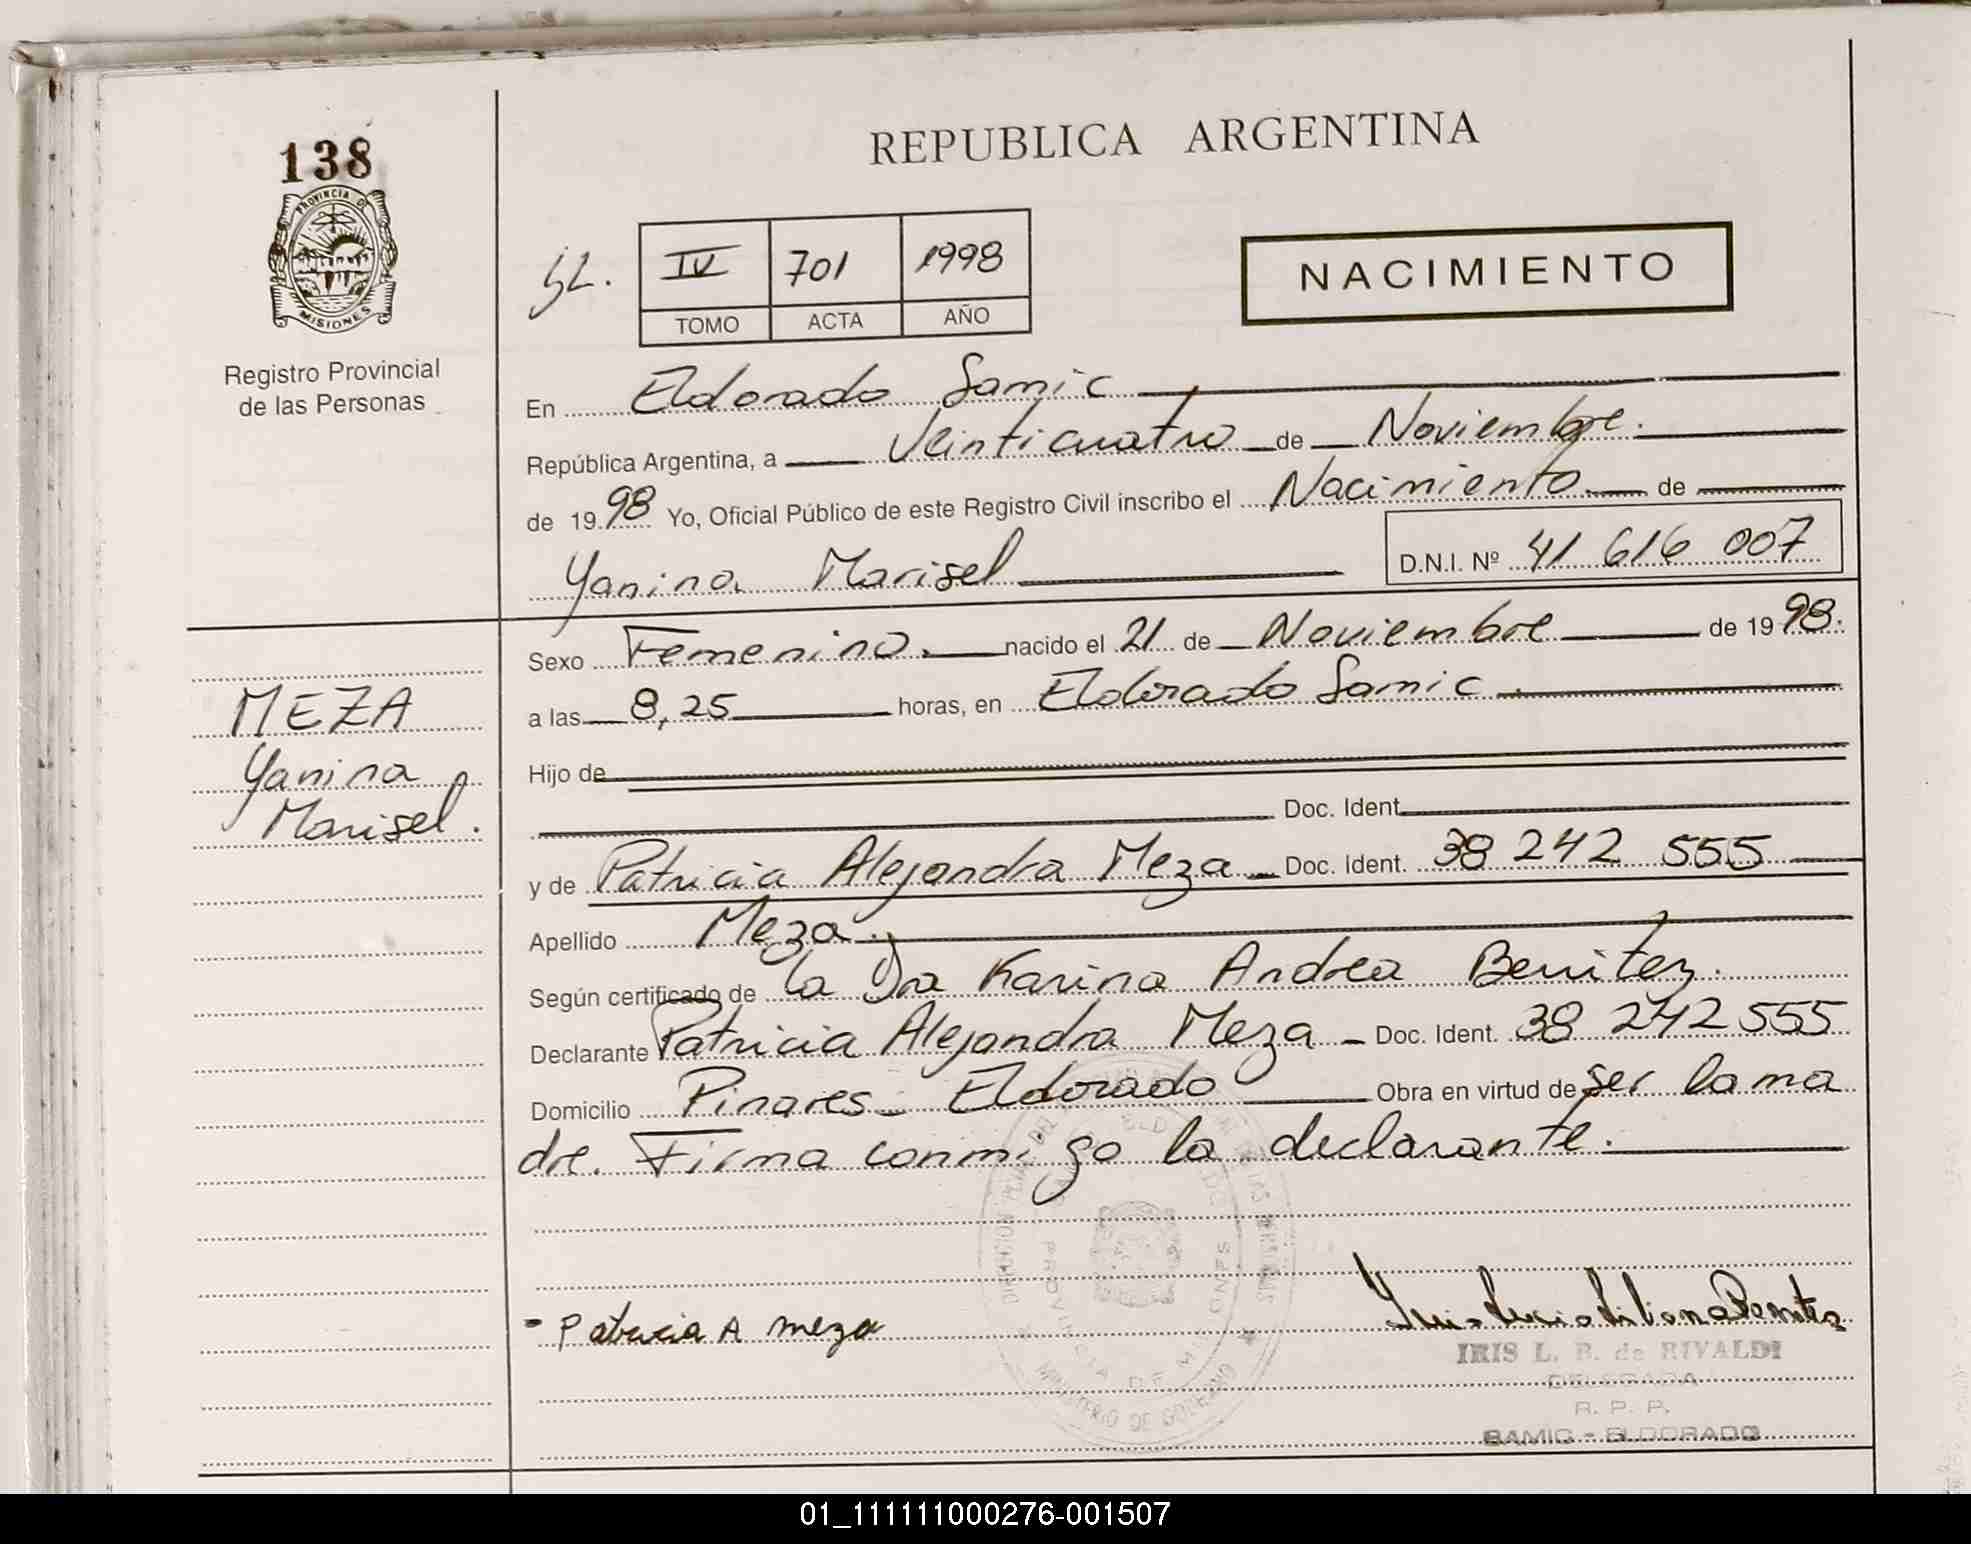 138
PROVINCIA DE
MISIONES
Registro Provincial
de las Personas
REPUBLICA ARGENTINA
IV 701 1998
TOMO ACTA AÑO
NACIMIENTO
En Eldorado Samic
República Argentina, a Veinticuatro de Noviembre.
de 1998 Yo, Oficial Público de este Registro Civil inscribo el Nacimiento de
Yanina Marisel D.N.I. Nº 41 616 007
Sexo Femenino. nacido el 21 de Noviembre de 1998.
a las 8,25 horas, en Eldorado Samic.
Hijo de
Doc. Ident.
y de Patricia Alejandra Meza Doc. Ident. 38 242 555
Apellido Meza.
Según certificado de la Dra Karina Andrea Benitez.
Declarante Patricia Alejandra Meza - Doc. Ident. 38 242 555
Domicilio Pinares - Eldorado Obra en virtud de ser la ma
dre. Firma conmigo la declarante.
MEZA
Yanina
Marisel.
- Patricia A meza
IRIS L. B. de RIVALDI
DELEGADA
R. P. P.
SAMIC - ELDORADO
PROVINCIA DE MISIONES
MINISTERIO DE GOBIERNO
01_111111000276-001507